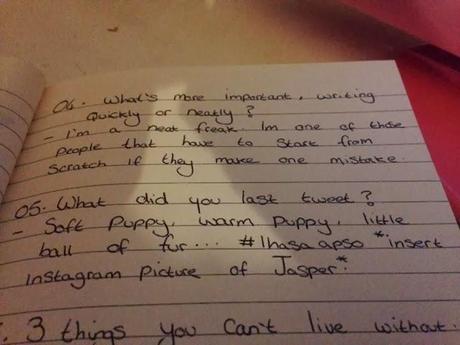 04. What's more important, writing
quickly or neatly?
- I'm a neat freak. Im one of those
people that have to start from
scratch if they make one mistake.
05. What did you last tweet?
- Soft puppy, warm puppy, little
ball of fur... #lhasaapso *insert
instagram picture of Jasper*.
3 things you can't live without.